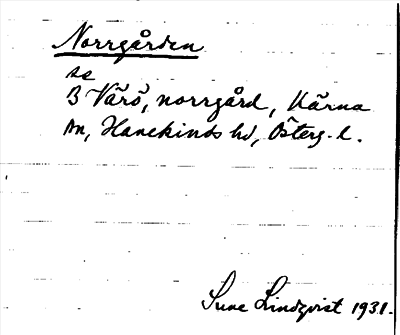 Norrgården
se
B Värö, norrgård, Kärna
sn, Hanekinds hd, Österg. l.
Sune Lindqvist 1931.